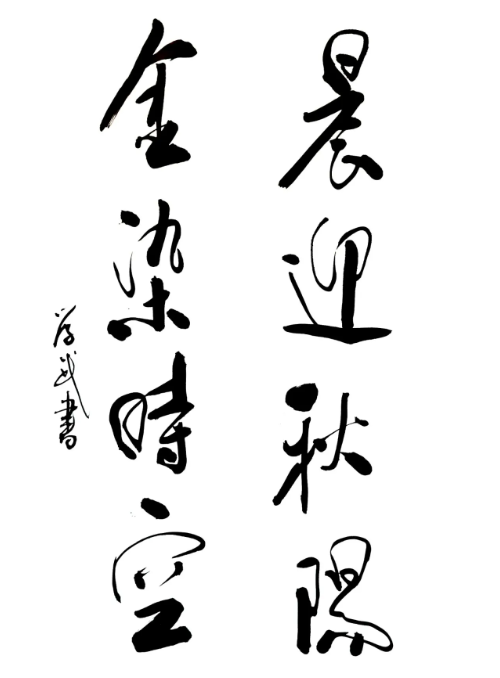 晨迎秋陽
金染時空
学武書